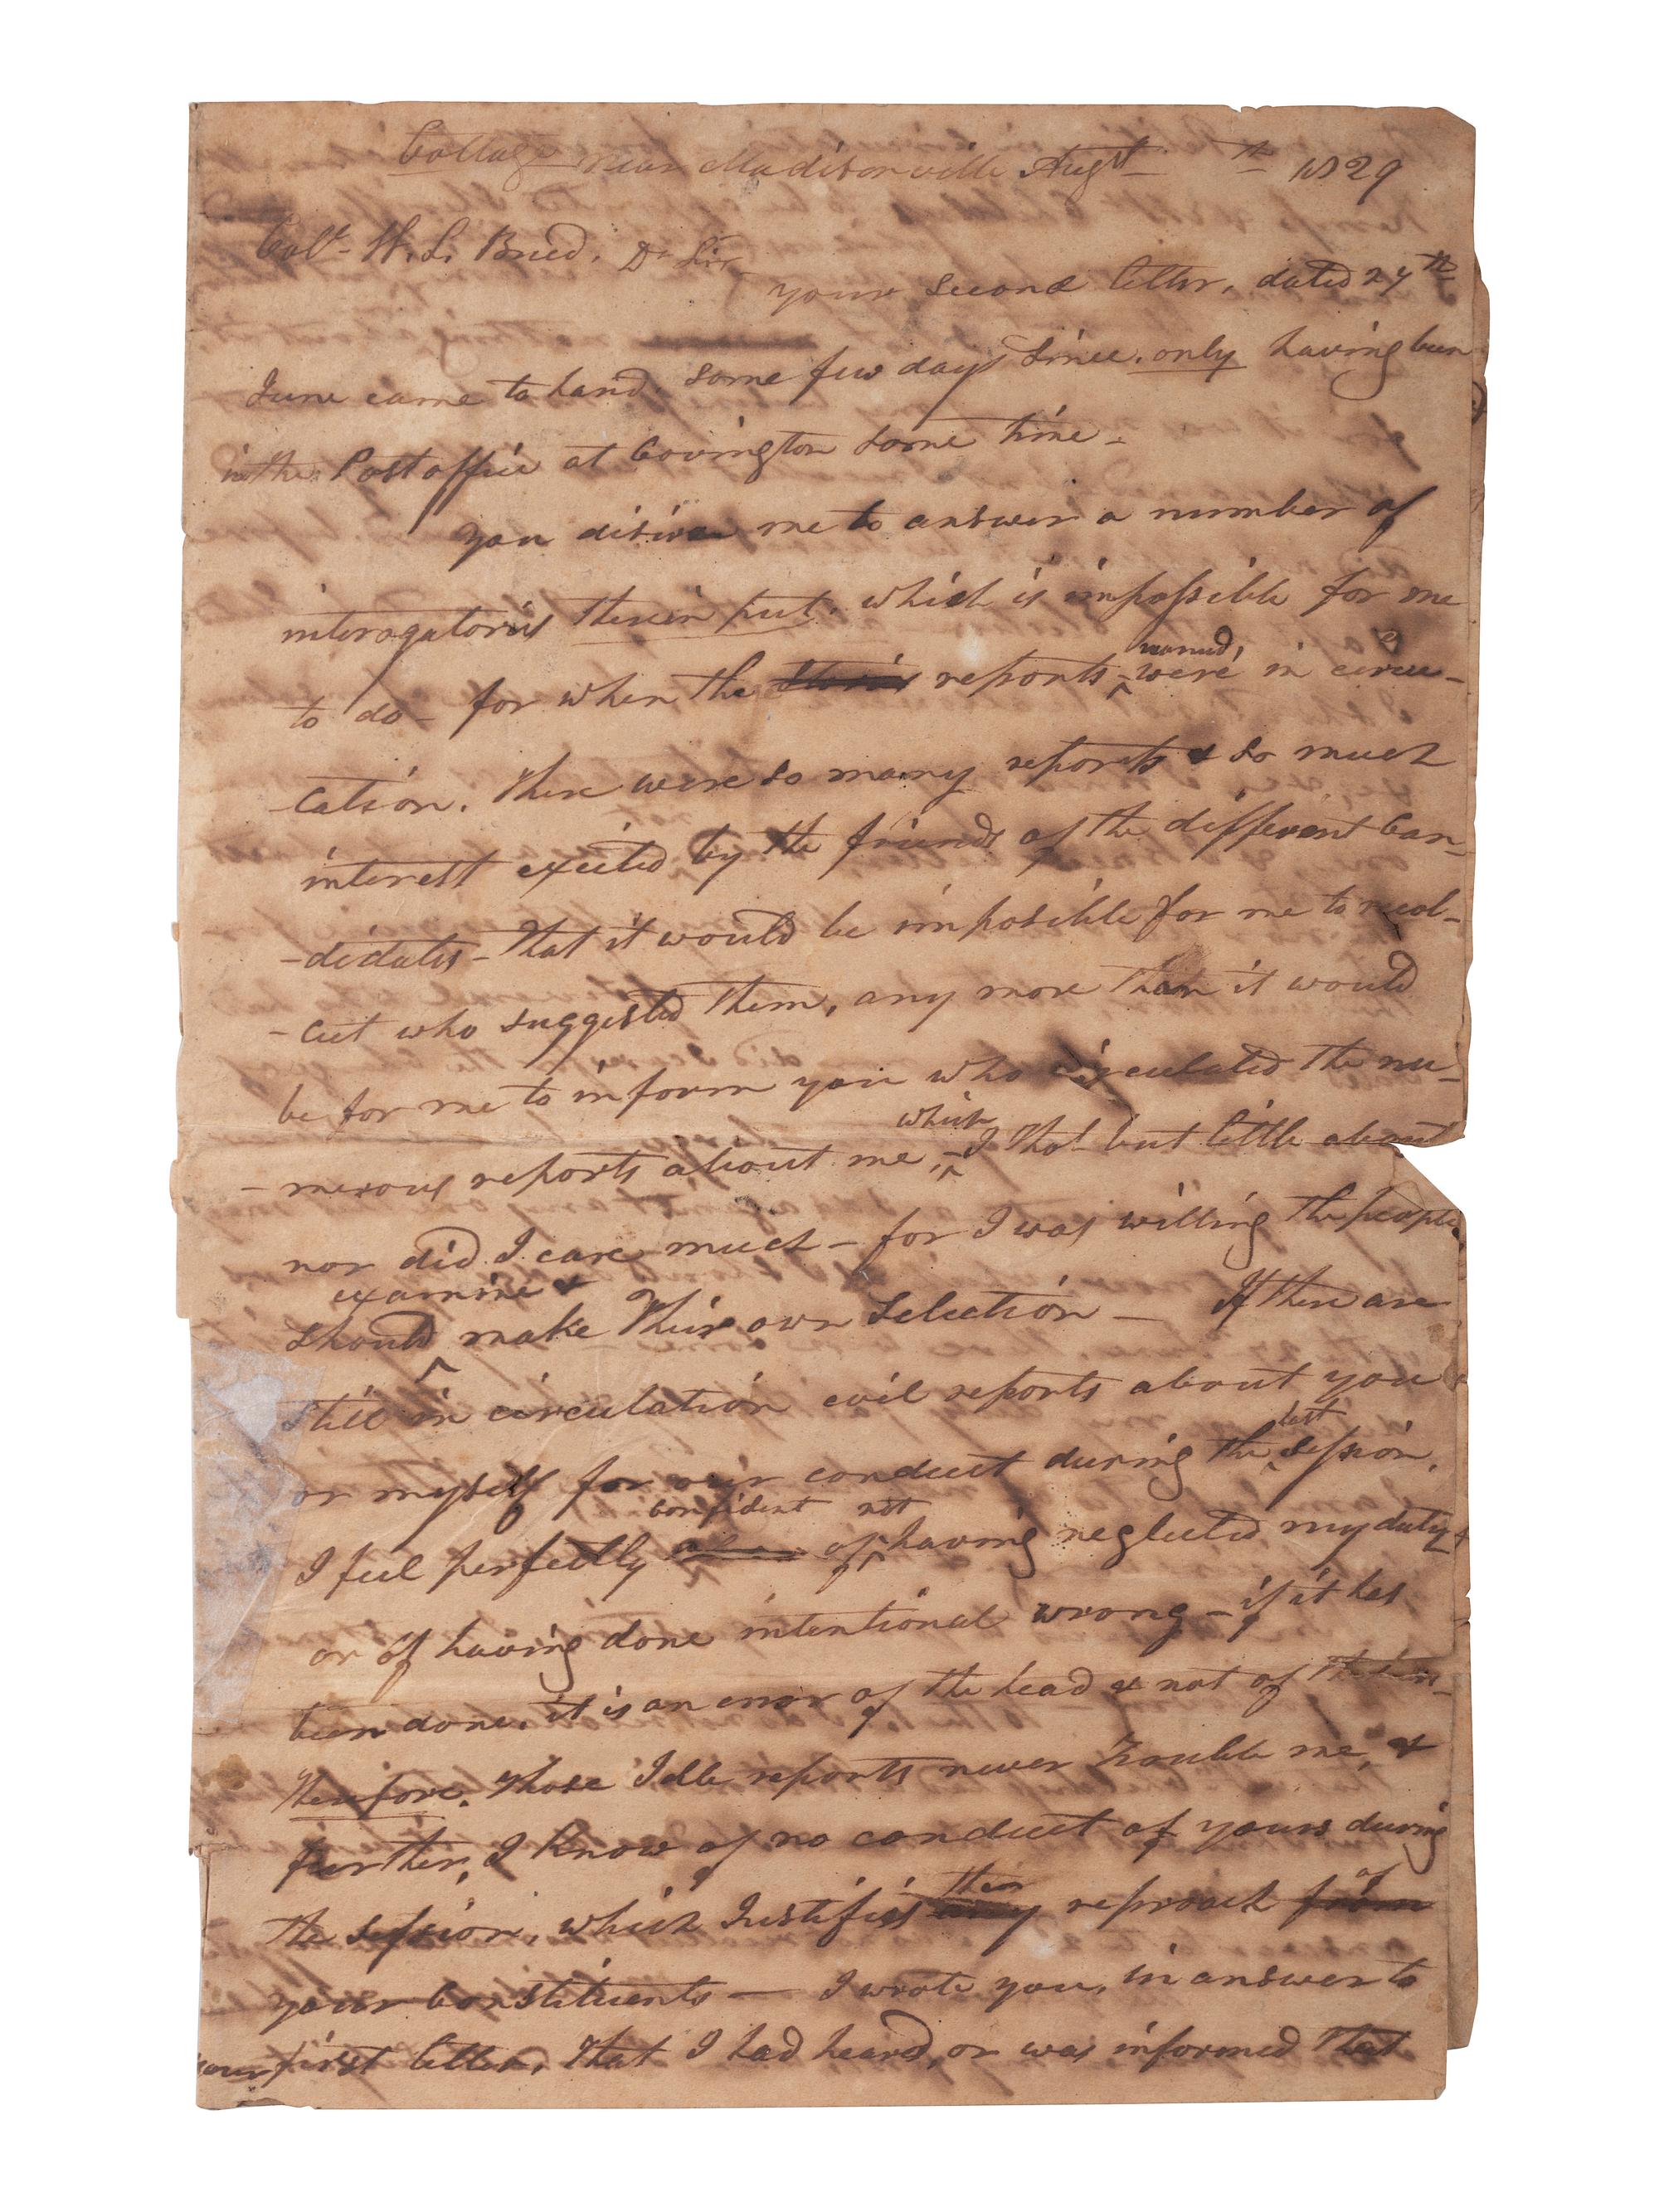 Cottage near Madisonville Augst th 1829
Colo. W. L. Breed. Dr Sir
your second letter, dated 24th
June came to hand. some few days since. only having been
in the Post office at Covington some time -
you desire me to answer a number of
interogatoris therein put. which is impossible for me
to do - for when the stories reports named, were in circu-
cation. there were so many reports & so much
interest excited by the friends of the different Can-
-didates - that it would be imposible for me to recol-
-cut who suggested them, any more than it would
be for me to inform you who circulated the nu-
-merous reports about me, which I thot but little about
nor did I care much - for I was willing the people
should examine & make their own selection - If there are
still in circulation evil reports about you
or myself for our conduct during the last session,
I feel perfectly confident of not having neglected my duty &
or of having done intentional wrong - if it has
been done. it is an error of the head & not of
therefore. those Idle reports never trouble me, &
further, I know of no conduct of yours during
the session, which Justifies any reproach from of
your Constituents - I wrote you, in answer to
your first letter, that I had heard, or was informed that